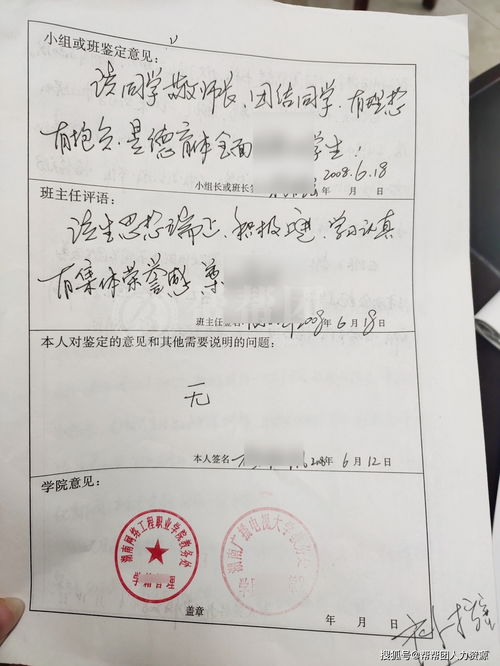 小组或班鉴定意见:
该同学敬师长、团结同学、有理想
有抱负、是德育体全面 学生!
小组长或班长签 2008.6.18
年 月 日
班主任评语:
该生思想端正、积极上进、学习认真
有集体荣誉感 尊
班主任签名 2008年 6 月 18日
本人对鉴定的意见和其他需要说明的问题:
无
本人签名 2008年 6 月 12日
学院意见:
湖南网络工程职业学院教务处
学籍管理
湖南广播电视大学
盖章 年 月 日
搜狐号@帮帮团人力资源